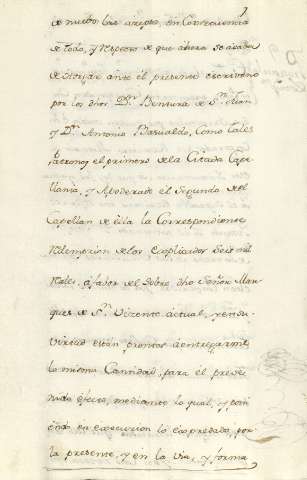 de nuebo los azepto, en Consequencia
de todo, y respecto de que ahora se acaba
de otorgar ante el presente escrivano
por los dhos Dn. Bentura de Sn. Juan
y Dn. Antonio Basualdo, como tales
Patronos el primero de la Citada Cape-
llania, y Apoderado el Segundo del
Capellan de ella la Correspondiente
Redempcion de los explicados seis mil
Reales, a favor del Sobre dho Señor Mar-
ques de Sn. Vizente actual, y en su
virtud están promptos á entregarme
la misma Cantidad, para el prese-
nado efecto, mediante lo qual, y poni-
endo en execucion lo expresado, por
la presente, y en la via, y forma